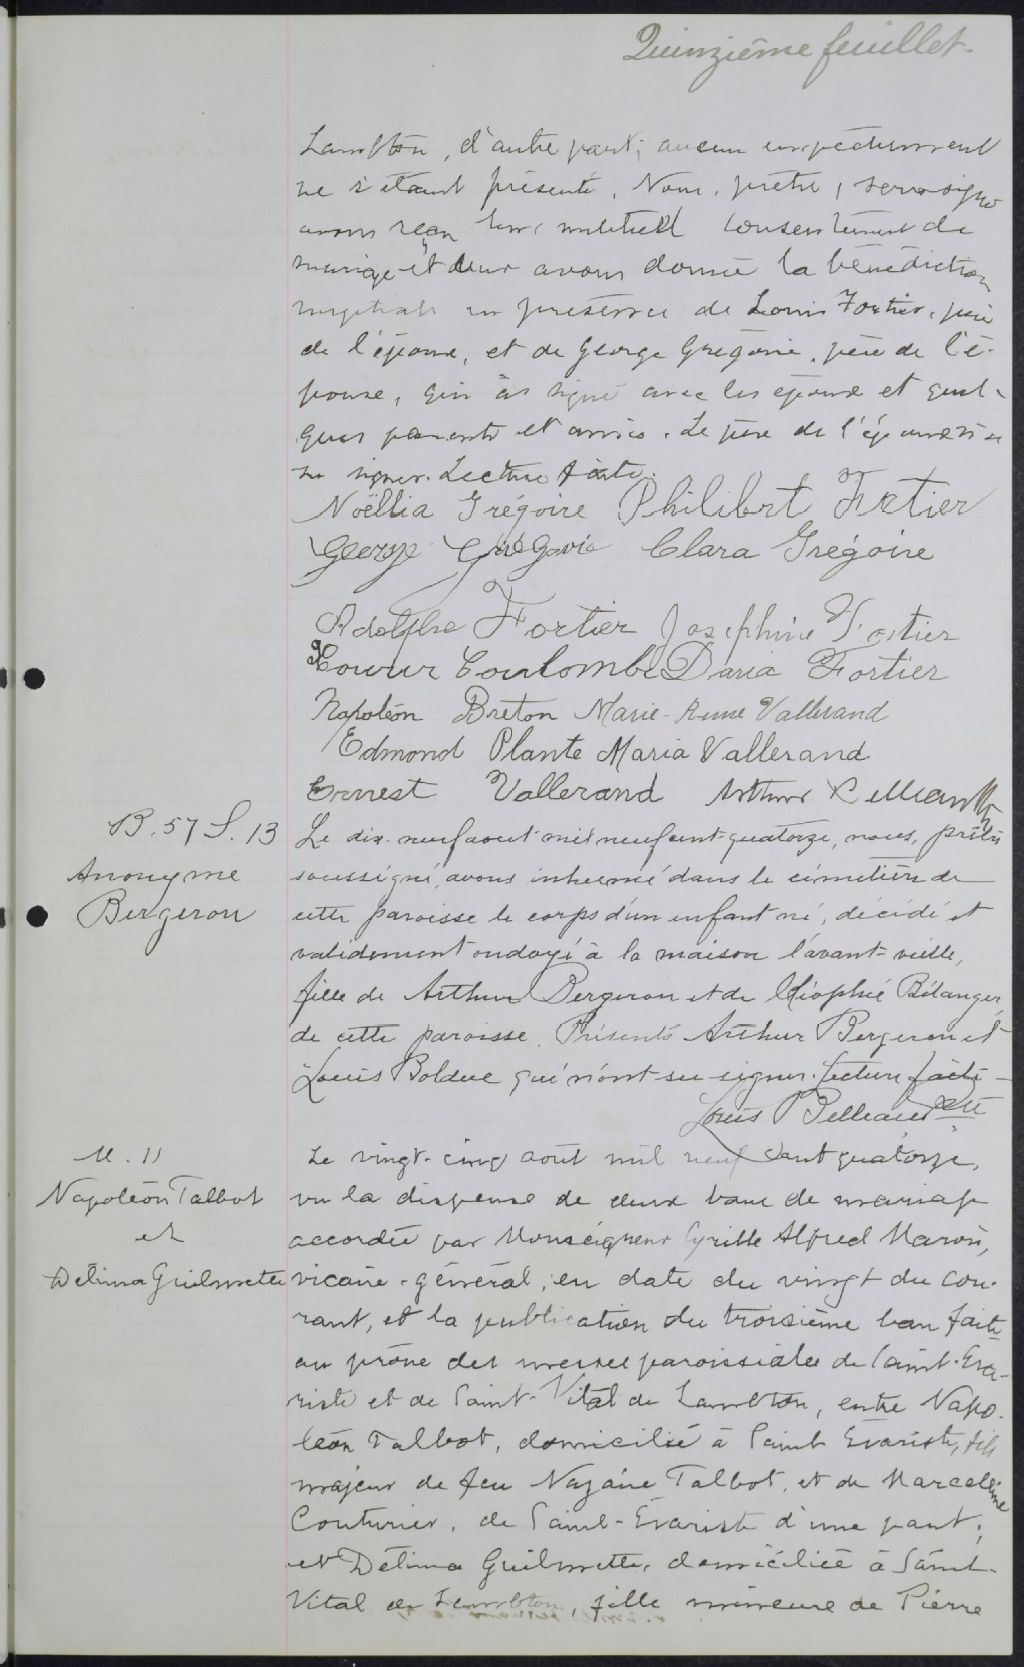 Quinzième feuillet
Lambton, d'autre part; aucun empêchement
ne s'étant présenté, Nous, prêtre, soussigné
avons reçu leur mutuel consentement de
mariage et leur avons donné la bénédiction
nuptiale en présence de Louis Fortier, père
de l'époux, et de George Grégoire, père de l'é-
pouse, qui a signé avec les époux et quel-
ques parents et amis. Le père de l'époux n'a
su signer. Lecture faite.
Noëllia Grégoire Philibert Fortier
George Grégoire Clara Grégoire
Adolphe Fortier Josephine Fortier
Coulombe Daria Fortier
Napoléon Breton Marie-Anne Vallerand
Edmond Plante Maria Vallerand
Ernest Vallerand Arthur
B. 57 S. 13
Anonyme
Bergeron
Le dix-neuf aout mil neuf cent quatorze, nous, prêtre
soussigné, avons inhumé dans le cimetière de
cette paroisse le corps d'un enfant né, décédé et
validement ondoyé à la maison l'avant-veille,
fille de Arthur Bergeron et de Cléophée Bélanger,
de cette paroisse. Présents Arthur Bergeron et
Louis Bolduc qui n'ont su signer. Lecture faite
Louis Ptre
M. 11
Napoléon Talbot
et
Délima Guilmette
Le vingt-cinq août mil neuf cent quatorze,
vu la dispense de deux bans de mariage
accordée par Monseigneur Cyrille Alfred Marois,
vicaire-général, en date du vingt du cou-
rant, et la publication du troisième ban faite
au prône des messes paroissiales de Saint-Eva-
riste et de Saint-Vital de Lambton, entre Napo-
léon Talbot, domicilié à Saint Evariste, fils
majeur de feu Nazaire Talbot, et de Marcelline
Couturier, de Saint-Evariste d'une part;
et Délima Guilmette, domiciliée à Saint-
Vital de Lambton, fille mineure de Pierre